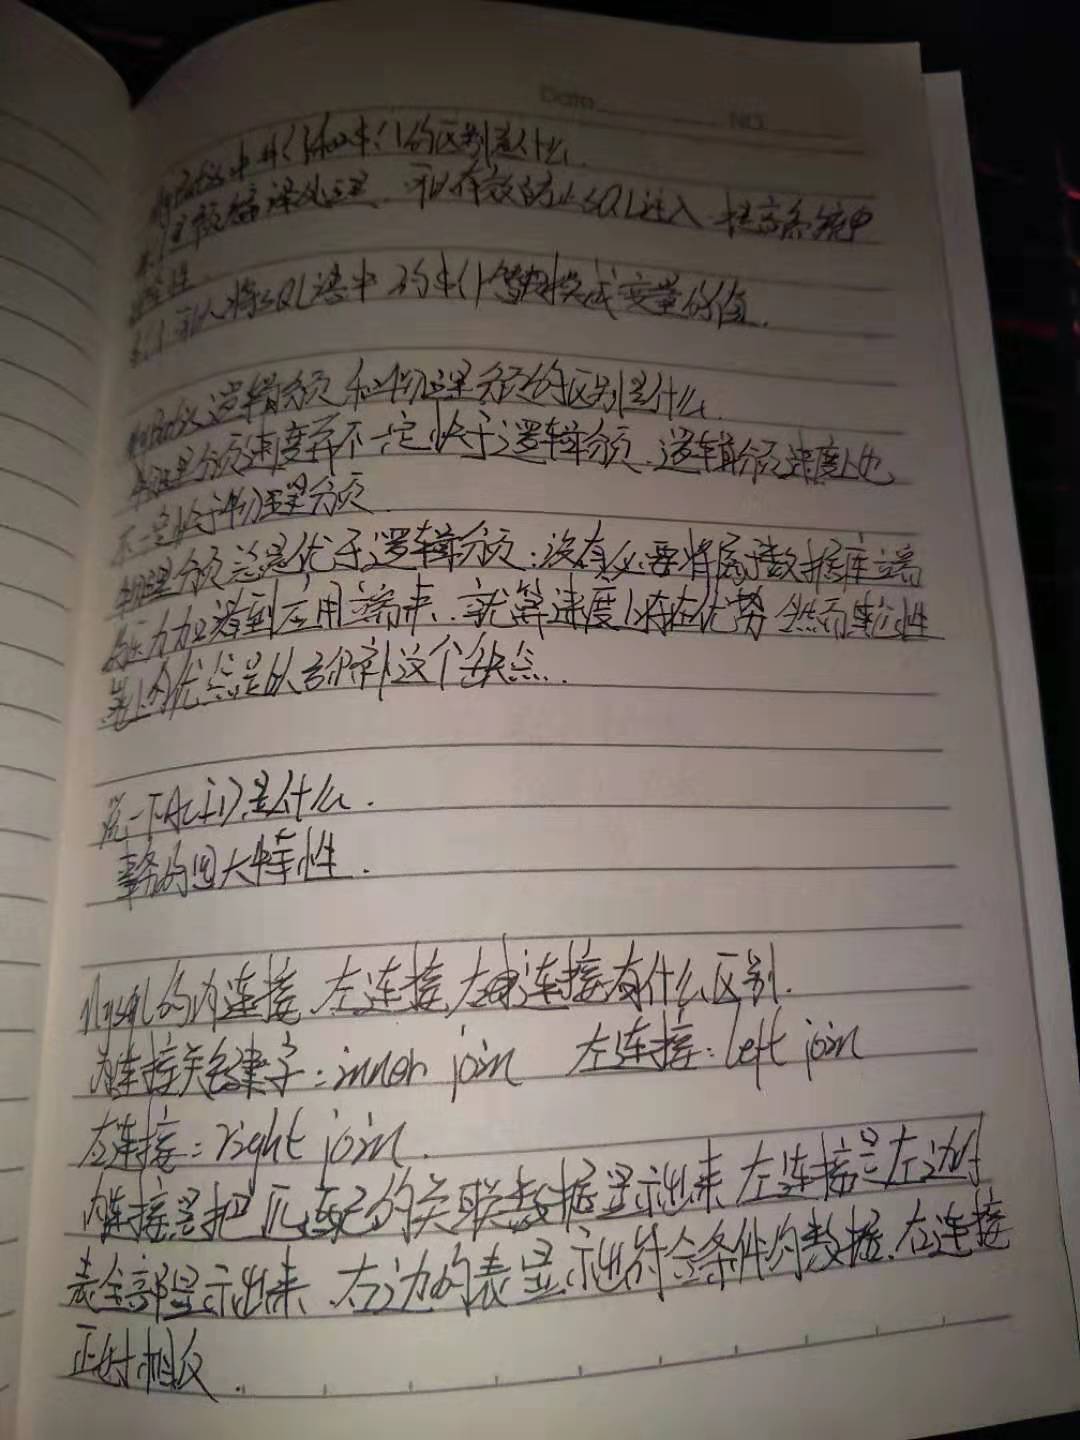 Date NO.
MyBatis中#{}和${}的区别是什么.
#{}是预编译处理. 可以有效防止SQL注入 提高系统中
安全性.
${}可以将SQL语中的${}替换成变量的值.
MyBatis逻辑分页和物理分页的区别是什么.
物理分页速度并不一定快于逻辑分页.逻辑分页速度上也
不一定快于物理分页.
物理分页总是优于逻辑分页:没有必要将属于数据库端
的压力加诸到应用端来.就算速度上存在优势 然而其它性
能上的优点足以弥补这个缺点.
说一下ACID是什么.
事务的四大特性.
Mysql的内连接.左连接.右连接有什么区别.
内连接关键字:inner join 左连接:left join
右连接:right join.
内连接是把匹配的关联数据显示出来 左连接是左边的
表全部显示出来.右边的表显示出符合条件的数据.右连接
正好相反.